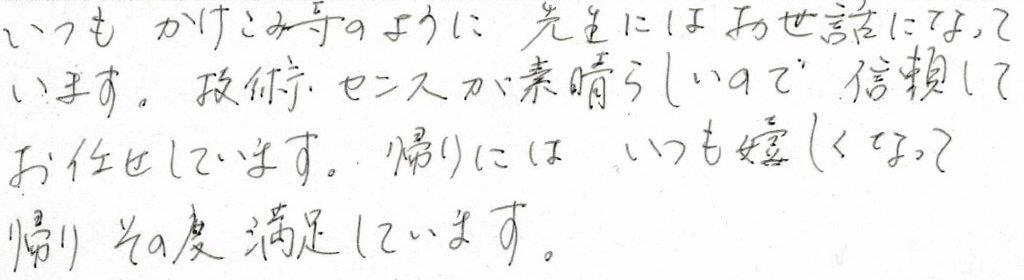 いつも かけこみ寺のように 先生にはお世話になって
います。技術・センスが素晴らしいので 信頼して
お任せしています。帰りには いつも嬉しくなって
帰り その度 満足しています。